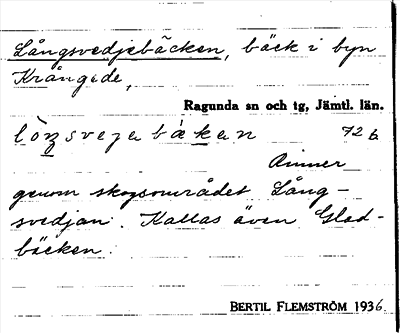 Långsvedjebäcken, bäck i byn
Krångede,
Ragunda sn och tg, Jämtl. län.
72 b
Rinner
genom skogsområdet Lång-
svedjan. Kallas även Glad-
bäcken.
BERTIL FLEMSTRÖM 1936.